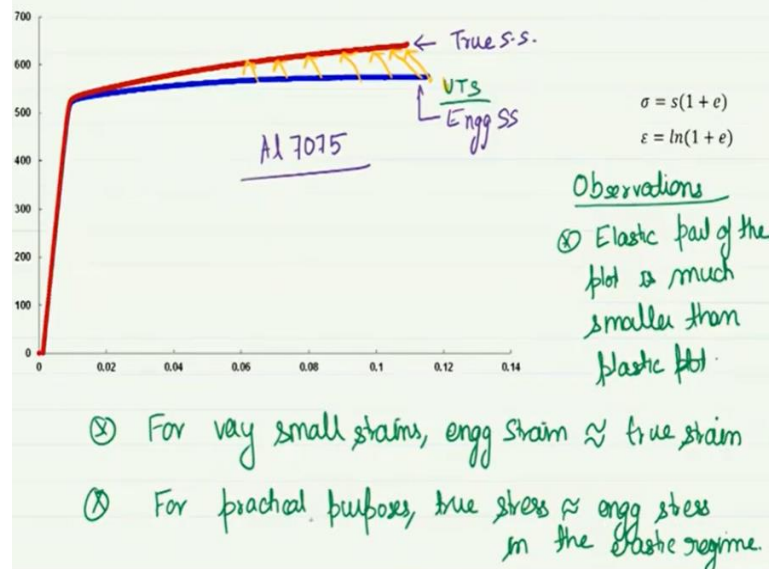 700
600
500
400
300
200
100
0
0 0.02 0.04 0.06 0.08 0.1 0.12 0.14
← True s.s.
UTS
Engg SS
Al 7075
σ = s(1 + e)
ε = ln(1 + e)
Observations
⊗ Elastic part of the
plot is much
smaller than
plastic plot.
⊗ For very small strains, engg strain ≈ true strain
⊗ For practical purposes, true stress ≈ engg stress
in the elastic regime.